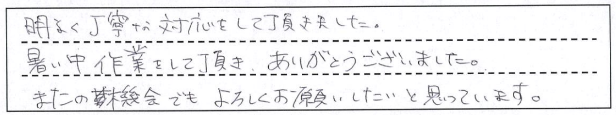 明るく丁寧な対応をして頂きました。
暑い中作業をして頂き、ありがとうございました。
またの機会でもよろしくお願いしたいと思っています。